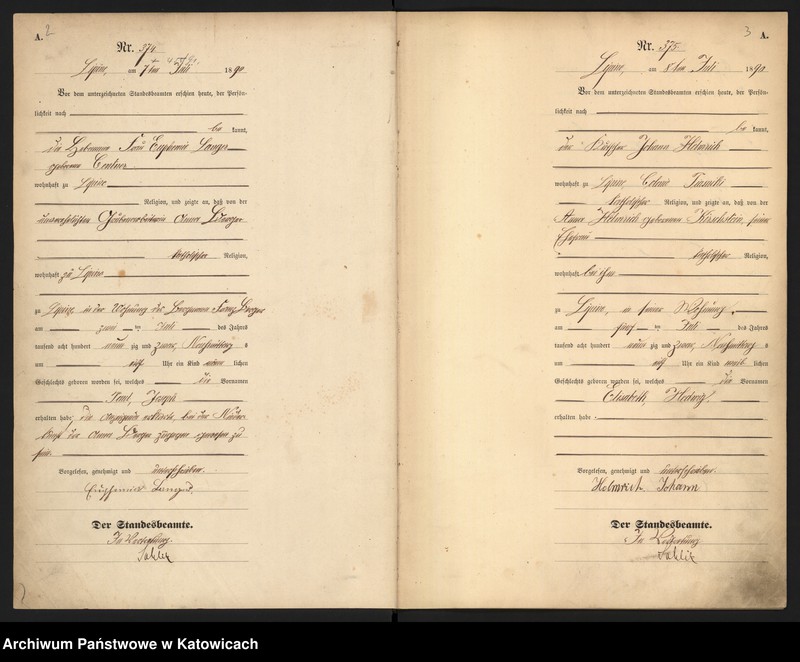 A. 2
Nr. 374.
Lipine, am 7ten Juli 1890
Vor dem unterzeichneten Standesbeamten erschien heute, der Persön-
lichkeit nach
be kannt,
die Hebamme Frau Euphemia Langer
geborene
wohnhaft zu Lipine
Religion, und zeigte an, daß von der
unverehelichten Grubenarbeiterin Anna
katholischer Religion,
wohnhaft zu Lipine
zu Lipine in der Wohnung des Bergmann Franz
am zwei ten Juli des Jahres
tausend acht hundert neun zig und zwar, Nachmittags
um elf Uhr ein Kind männ lichen
Geschlechts geboren worden sei, welches die Vornamen
Paul, Joseph
erhalten habe, die Anzeigende erklärte, bei der Nieder-
kunft der Anna zugegen gewesen zu
sein.
Vorgelesen, genehmigt und unterschrieben.
Euphemia Langer
Der Standesbeamte.
In Vertretung
3 A.
Nr. 375.
Lipine, am 8ten Juli 1890
Vor dem unterzeichneten Standesbeamten erschien heute, der Persön-
lichkeit nach
be kannt,
der Johann Helmrich
wohnhaft zu Lipine, Colonie Piasniki
katholischer Religion, und zeigte an, daß von der
Anna Helmrich geborenen Kirschstein, seiner
Ehefrau
katholischer Religion,
wohnhaft bei ihm
zu Lipine, in seiner Wohnung,
am fünf ten Juli des Jahres
tausend acht hundert neun zig und zwar, Nachmittags
um elf Uhr ein Kind weib lichen
Geschlechts geboren worden sei, welches die Vornamen
Elisabeth, Hedwig
erhalten habe.
Vorgelesen, genehmigt und unterschrieben.
Helmrich Johann
Der Standesbeamte.
In Vertretung
Archiwum Państwowe w Katowicach